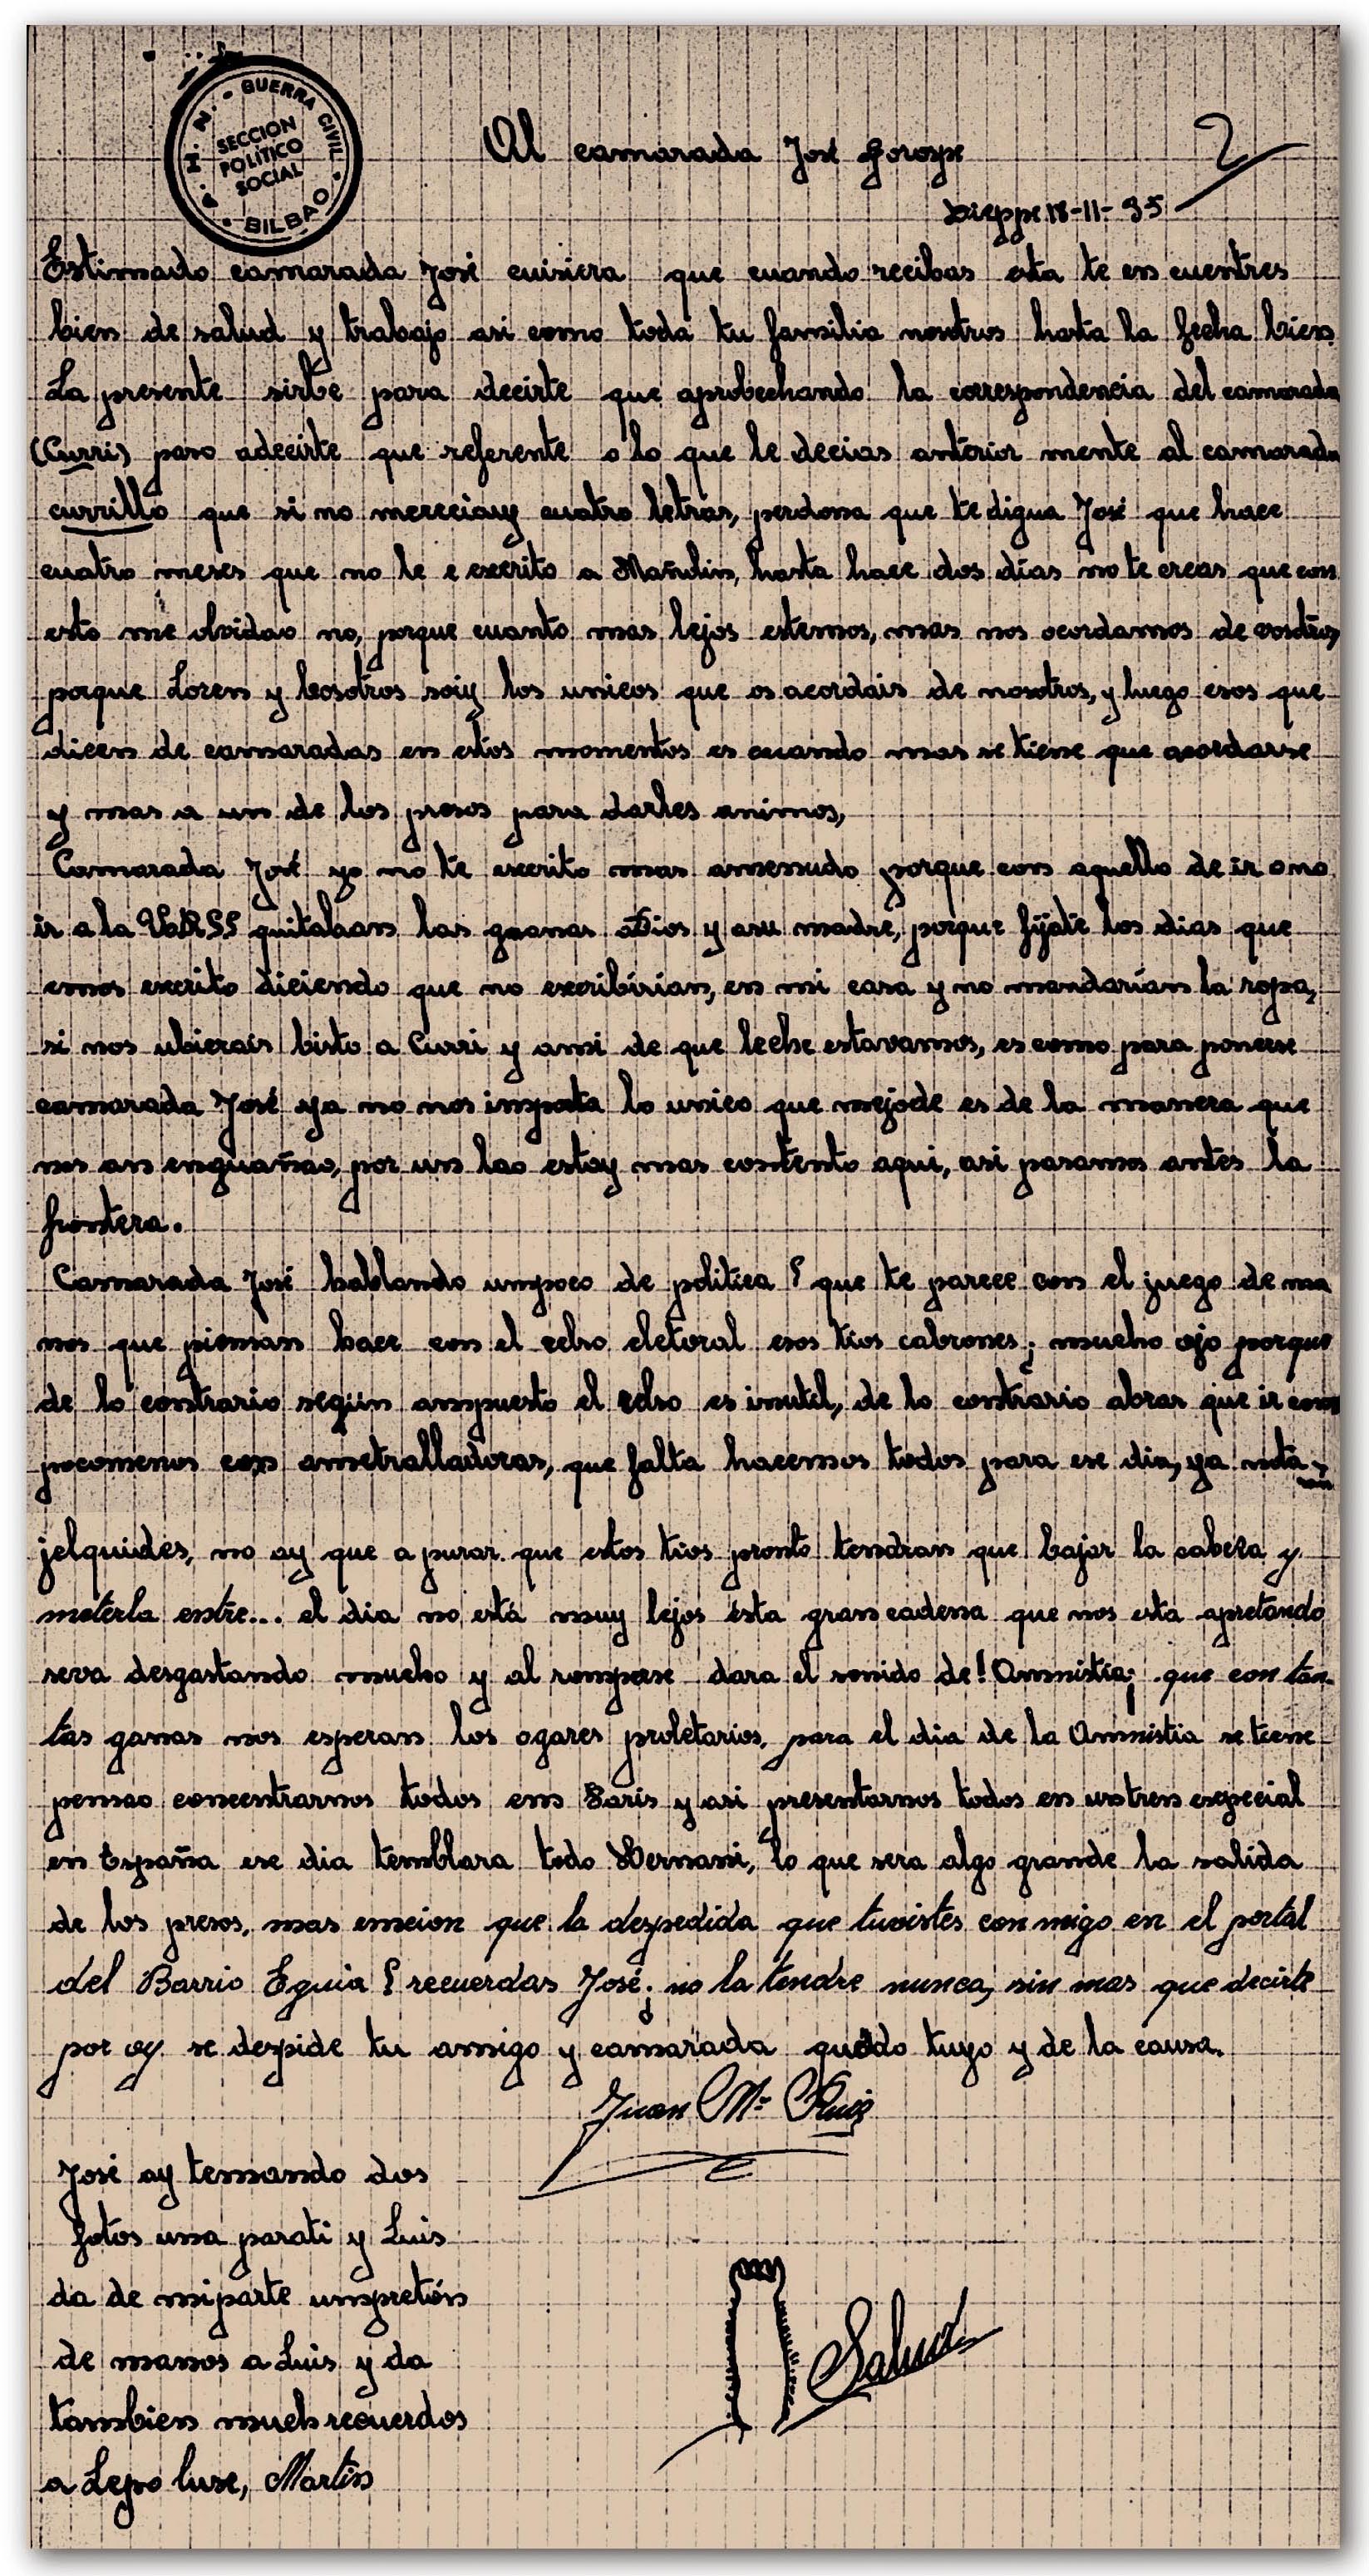 A.H.N. - GUERRA CIVIL - BILBAO
SECCION
POLÍTICO
SOCIAL
Al camarada José Gorospe
2
Dieppe 18-11-35
Estimado camarada José cuisiera que cuando recibas esta te en cuentres
bien de salud y trabajo asi como toda tu familia nosotros hasta la fecha bien
La presente sirbe para decirte que aprobechando la correspondencia del camarada
(Curri) paso adecirte que referente a lo que le decias anterior mente al camarada
currillo que si no mereciauy cuatro letras, perdona que te digua José que hace
cuatro meses que no le e escrito a Mañulin, hasta hace dos días no te creas que con
esto me olvidao no, porque cuanto mas lejos estemos, mas nos acordamos de vosotros
poque Loren y bosotros soiy los unicos que os acordais de nosotros, y luego esos que
dicen de camaradas en estos momentos es cuando mas se tiene que acordarse
y mas a un de los presos para darles animos,
Camarada José yo no te escrito mas amenudo porque con aquello de ir o no
ir a la U.R.S.S quitabam las gaanas a Dios y asu madre, porque fijate los dias que
emos escrito diciendo que no escribirian, en mi casa y no mandarían la ropa,
si nos ubierais bisto a Curri y ami de que leche estavamos, es como para ponerse
camarada José ya no nos impota lo unico que mejode es de la manera que
nos an enguañao, por un lao estoy mas contento aqui, asi pasamos antes la
frontera.
Camarada José hablando umpoco de politica ? que te parece con el juego de ma
nos que piensan hacer con el echo eletoral esos tios cabrones¡ mucho ojo porque
de lo contrario según ampuesto el echo es inutil, de lo contrario abras que ir con
pocomenos con ametralladoras, que falta hacemos todos para ese dia, ya nota
jelquides, no ay que a purar que estos tios pronto tendran que bajar la cabeza y
meterla entre... el dia no está muy lejos ésta gran cadena que nos esta apretando
seva desgastando mucho y al rompese dara el sonido de! Amnistia¡ que con tan
tas ganas nos esperan los ogares proletarios, para el dia de la Amnistia se tiene
pensao concentrarnos todos em Paris y asi presentarnos todos en un tren especial
en España ese dia temblara todo Hernani, lo que sera algo grande la salida
de los presos, mas emcion que la despedida que tuvistes con migo en el portal
del Barrio Eguia ? recuerdas José¿ no la tendre nunca, sin mas que decirte
por oy se despide tu amigo y camarada quedo tuyo y de la causa.
Juan Mª Ruiz
José ay temando dos
fotos una parati y Luis
da de miparte umpretón
de manos a Luis y da
tambien much recuerdos
a Lepo luse, Martin
Salud